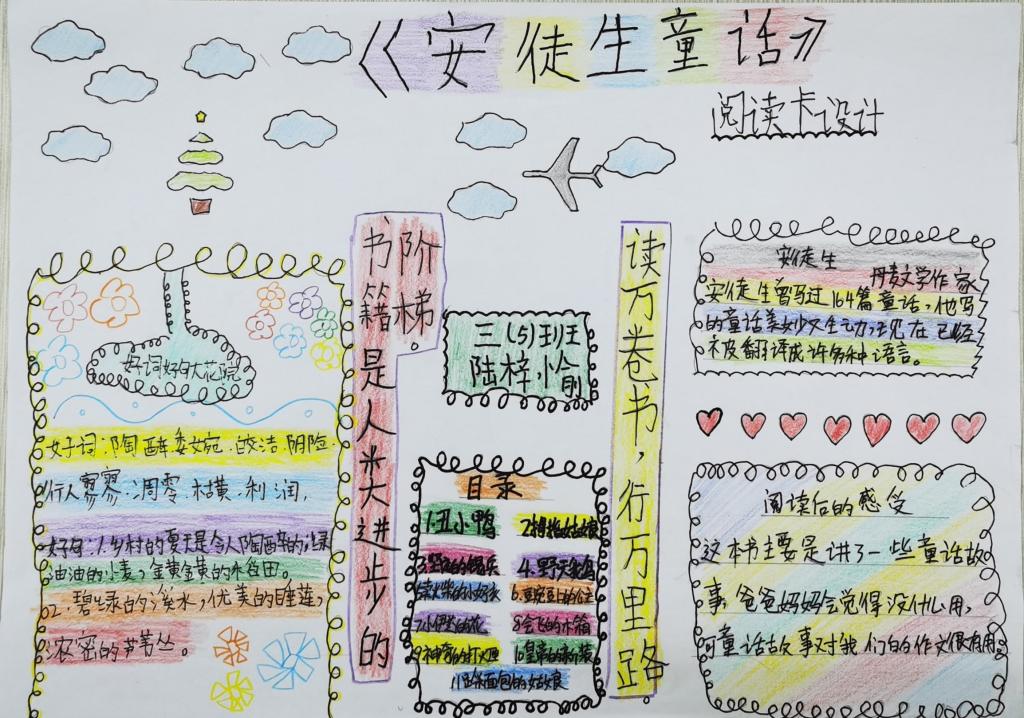 《安徒生童话》
阅读卡设计
好词好句大花院
好词:陶醉.委婉.皎洁.阴险.
行人寥寥.凋零.横.利润.
好句:1.乡村的夏天是令人陶醉的,绿
油油的小麦,金黄金黄的禾苗田。
2.碧绿的溪水,优美的睡莲,
浓密的芦苇丛。
书籍是人类进步的
阶梯。
三(5)班
陆梓愉
目录
1.丑小鸭
2.拇指姑娘
4.野天鹅
5.卖火柴的小女孩
6.豌豆上的公主
7.小伊达的花
8.会飞的木箱
9.神奇的打火匣
10.皇帝的新装
11.踩面包的姑娘
读万卷书,行万里路
安徒生
丹麦文学作家
安徒生曾写过164篇童话,他写
的童话美妙又生动,现在已经
被翻译成许多种语言。
阅读后的感受
这本书主要是讲了一些童话故
事,爸爸妈妈会觉得没什么用,
可童话故事对我们的作文很有用。